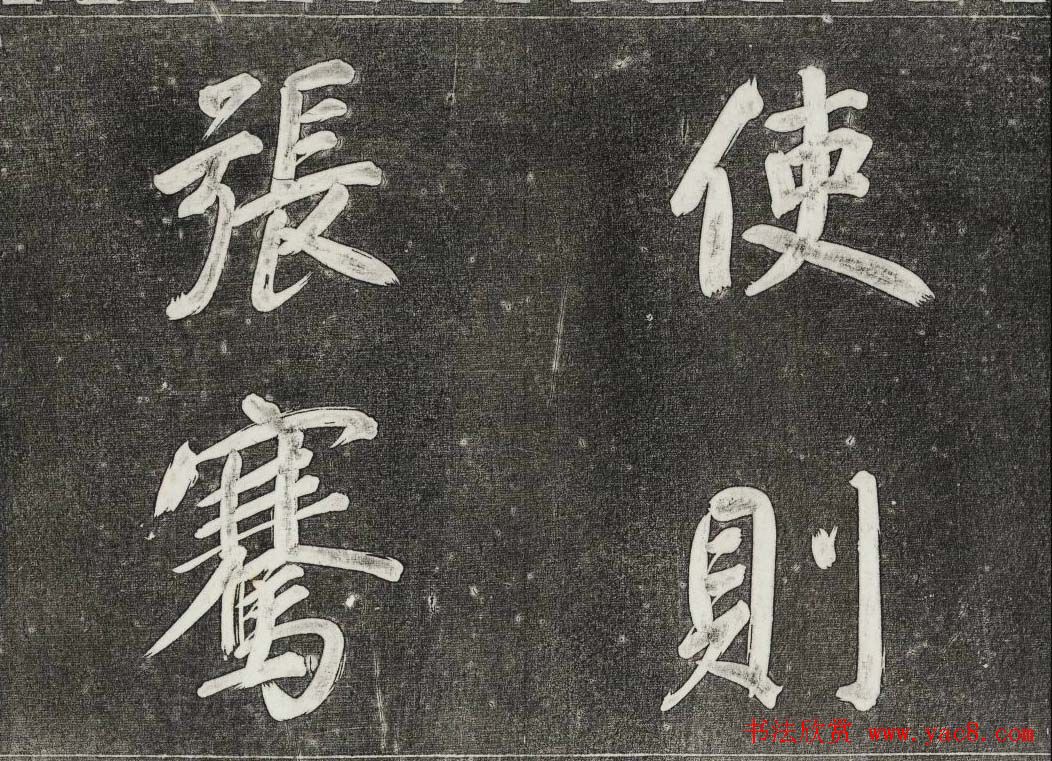 使則
張騫
书法欣赏 www.yac8.com